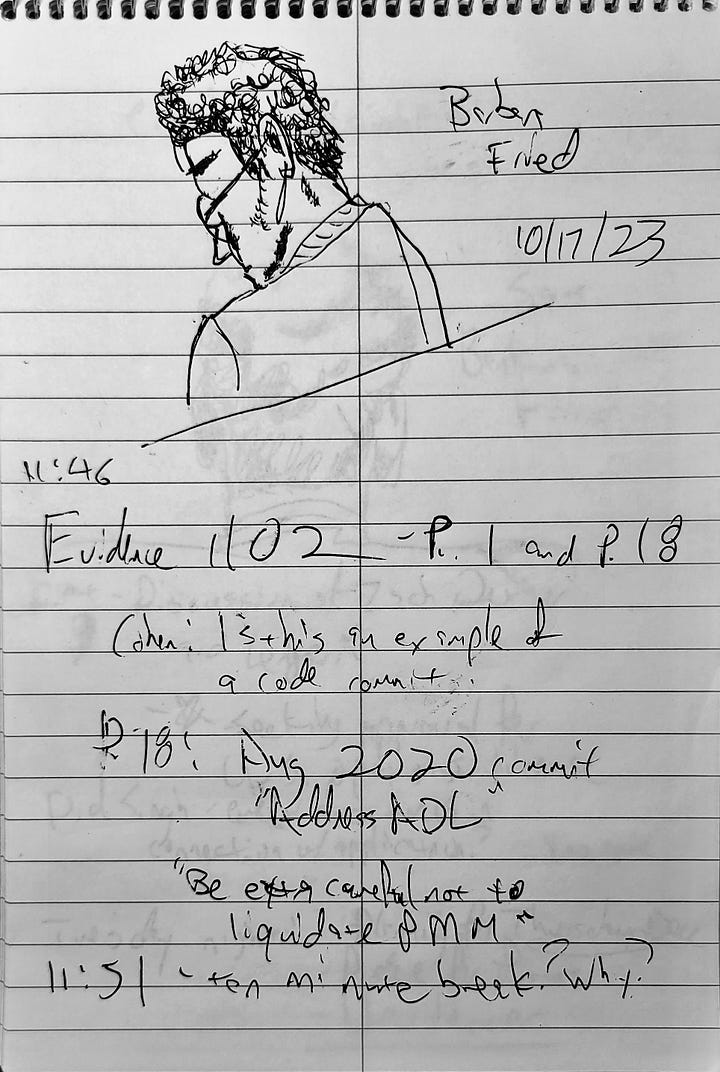 Barbara
Fried
10/17/23
11:46
Evidence 1102 - P. 1 and P. 18
Cohen: Is this an example of
a code commit?
P. 18: Aug 2020 commit
"Address AOL"
"Be extra careful not to
liquidate PMM"
11:51 - ten minute break? Why?